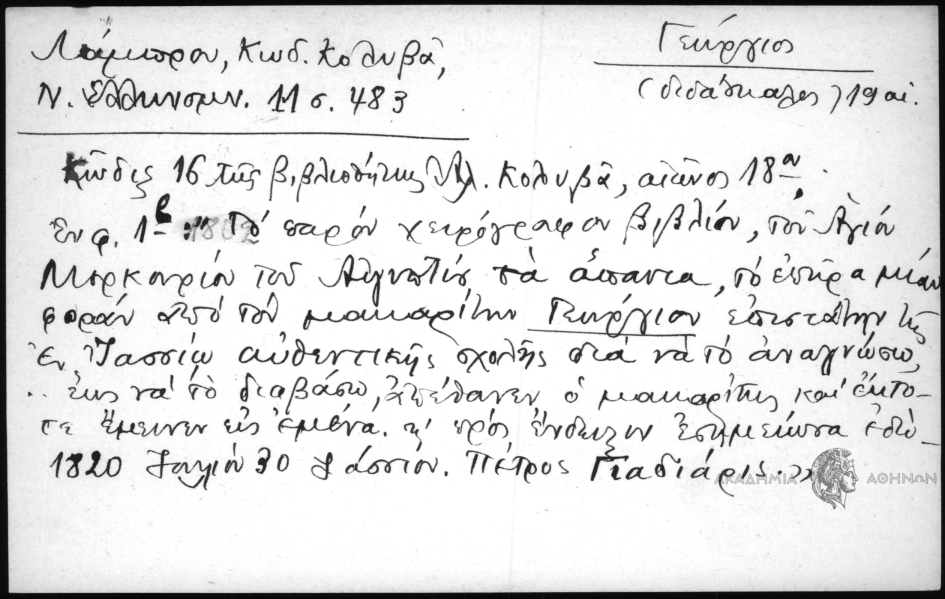 Λάμπρου, Κωδ. Κολυβᾶ,
Ν. Ἑλληνομν. 11 σ. 483
Γεώργιος
(διδάσκαλος) 19 αἰ.
Κῶδιξ 16 τῆς βιβλιοθήκης Ἀλ. Κολυβᾶ, αἰῶνος 18ου.
Ἐν φ. 1β " Τό παρόν χειρόγραφον βιβλίον, τοῦ Ἁγίου
Μαρκουρίου τοῦ Αἰγυπτίου τὰ ἅπαντα, τό ἐπῆρα μίαν
φοράν ἀπό τόν μακαρίτην Γεώργιον ἐπιστάτην τῆς
ἐν Ἰασσίῳ αὐθεντικῆς σχολῆς διά νά τό ἀναγνώσω,
.. ἕως νά τό διαβάσω, ἀπέθανεν ὁ μακαρίτης καί ἔκτο-
τε ἔμεινεν εἰς ἐμένα. κ' πρός ἔνδειξιν ἐσημείωσα ἐδῶ
1820 Ἰουλίου 30 Ἰάσσιον. Πέτρος Γιαδιάρις.»
ΑΚΑΔΗΜΙΑ ΑΘΗΝΩΝ